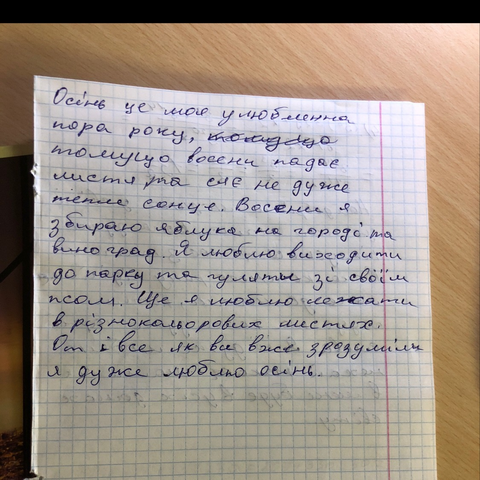 Осінь це моя улюбленна
пора року,
томущо восени падає
листя, та сяє не дуже
тепле сонце. Восени я
збираю яблука на городі та
виноград. Я люблю виходити
до парку та гуляты зі своїм
псом. Ще я люблю лежати
в різнокольорових листях.
От і все як ви вже зрозуміли
я дуже люблю осінь.